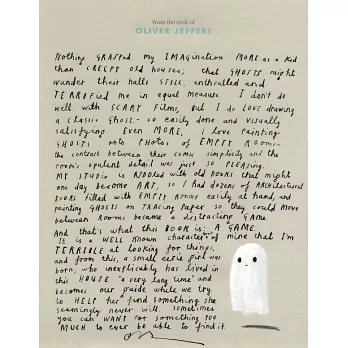 from the desk of
OLIVER JEFFERS
Nothing GRASPED my IMAGINATION MORE as a Kid
than CREEPY old houses; that GHOSTS might
wander their halls STILL, enthralled and
TERRIFIED me in equal measure. I don't do
well with SCARY films, But I do LOVE drawing
a classic Ghost - so easily done and visually
satisfying. Even MORE, I love painting
GHOSTS onto PHOTOS of EMPTY ROOMS -
the contrast between their comic simplicity and the
rooms opulent detail was just so PLEASING.
MY STUDIO is RIDDLED with old BOOKS that might
one day become ART, so I had dozens of ARCHitectural
BOOKS filled with EMPTY ROOMS easily at hand, and
painting GHOSTS on TRACING PAPER so they could MOVE
between Rooms became a DISTRACTING GAME.
And that's what this BOOK is: A GAME.
It is a WELL KNOWN character of mine that I'm
TERRIBLE at looking for things,
and from this, a small eerie girl was
born, who inexplicably has lived in
this HOUSE "a very long time" and
becomes our guide while we try
to HELP her find something she
seemingly never will. Sometimes
you can WANT for something TOO
MUCH to ever be able to find it.